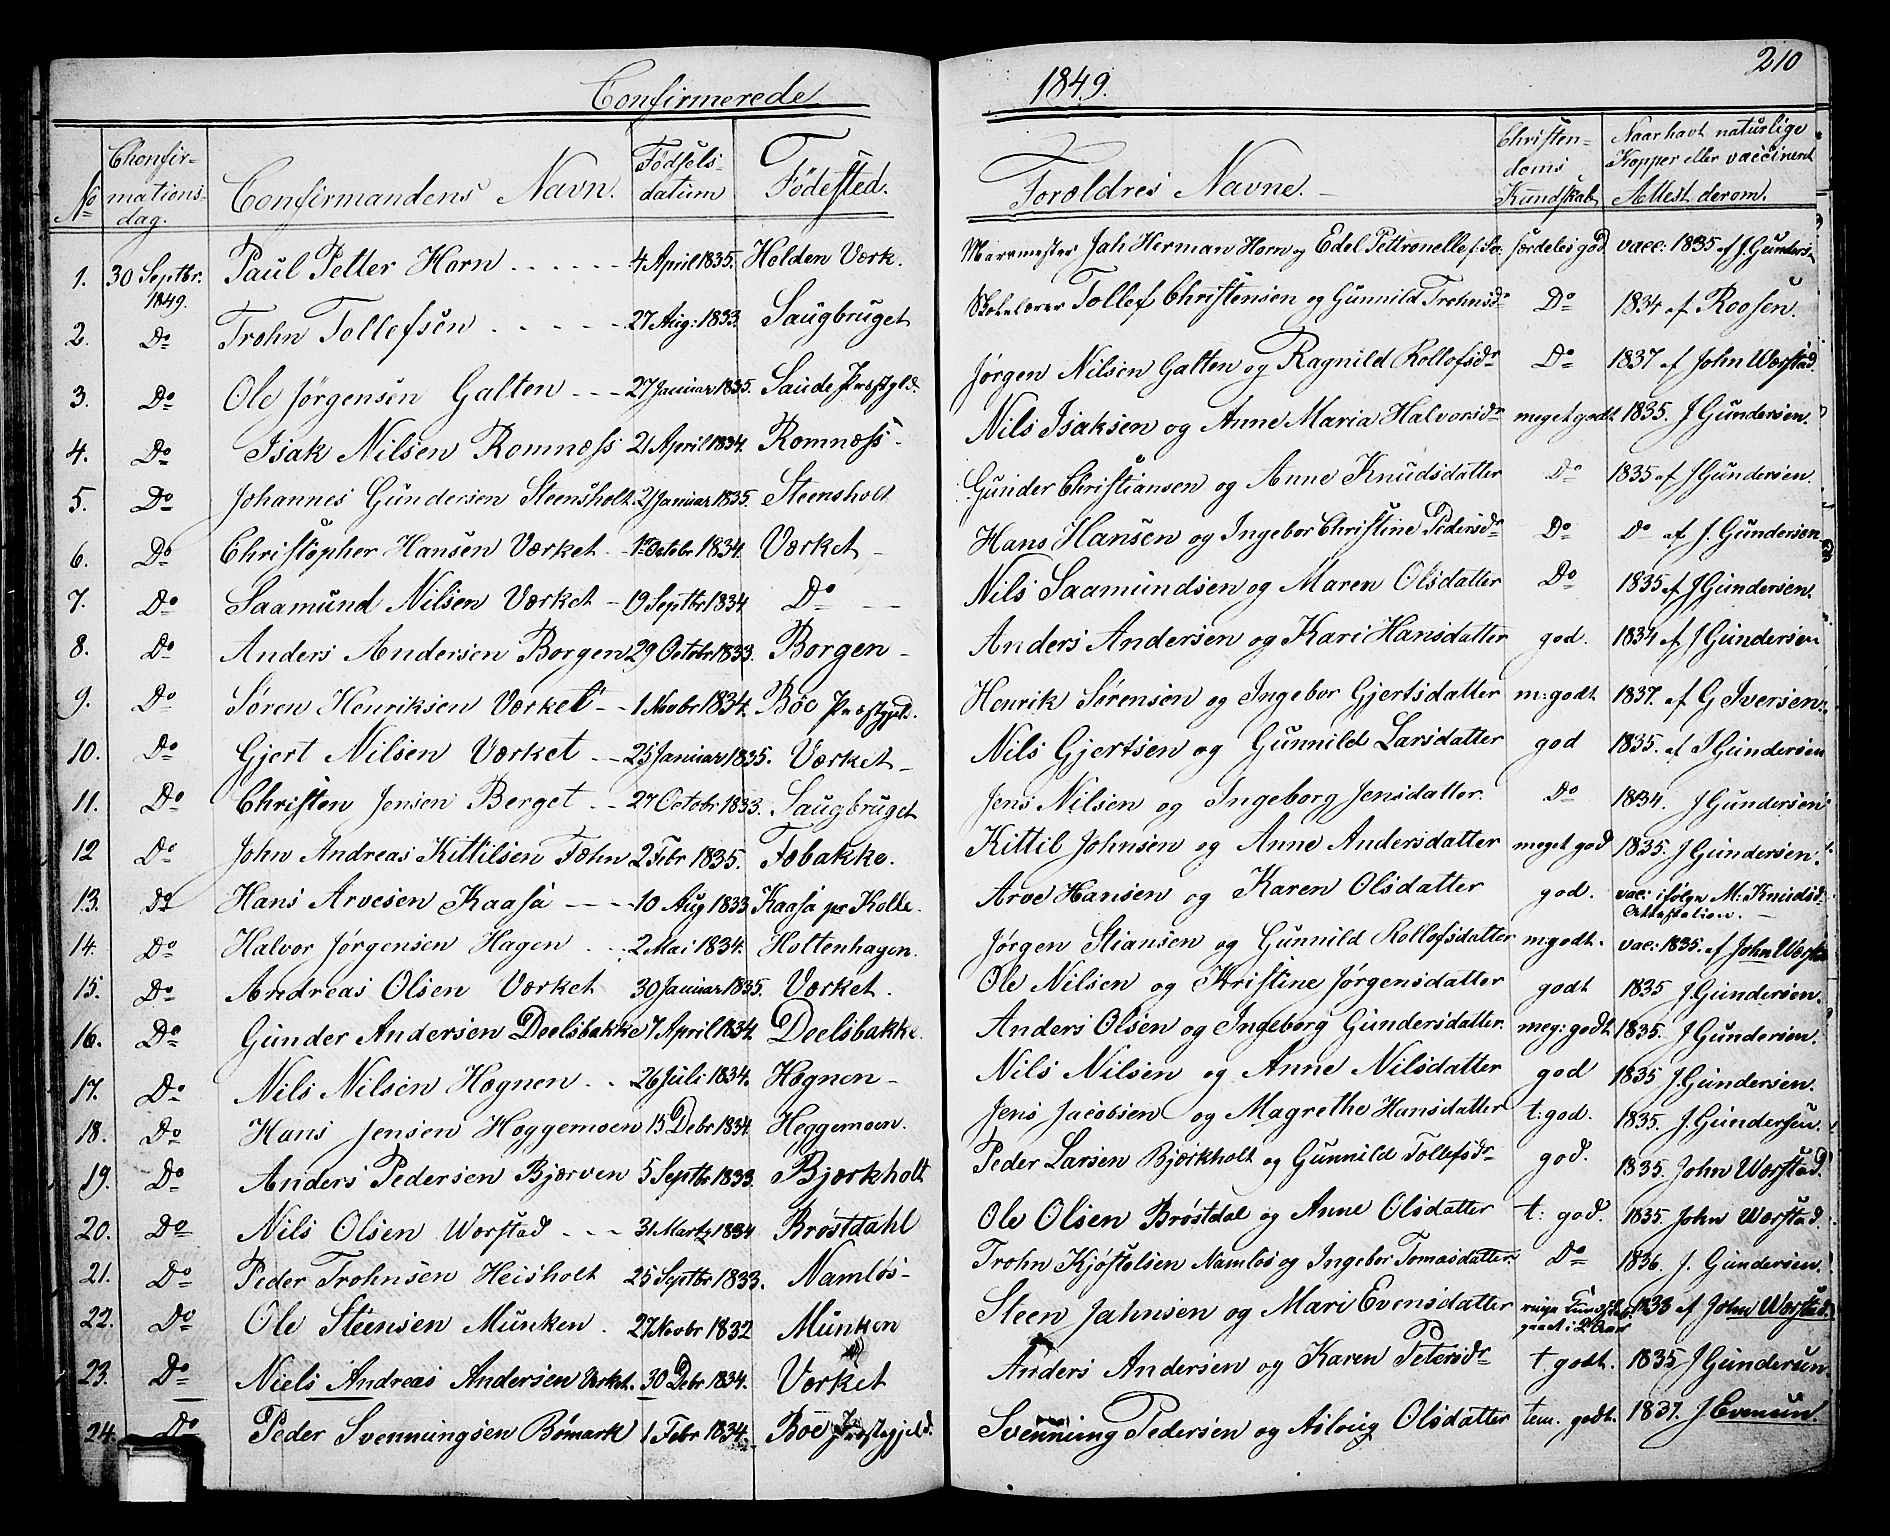 210
Confirmerede 1849.
No Chonfirmations-dag. Confirmandens Navn. Fødsels-datum Fødested. Forældres Navne. Christendoms Kundskab Naar havt naturlige Kopper eller vaccineret Attest derom.
1. 30 Septbr. 1849. Paul Petter Horn 4 April 1835. Holden Værk. Jah Herman Horn og Edel Pettronelle særdeles god vacc: 1835 af J. Gunders-
2. Do Trohn Tollefsen 27 Aug: 1833 Saugbruget Skolelærer Tollef Christensen og Gunnild Trohnsdr Do 1834 af Roosen.
3. Do Ole Jørgensen Galten 27 Januar 1835. Saude Præstgld. Jørgen Nilsen Galten og Ragnild Rollofsdr Do 1837 af John Wærstad.
4. Do Isak Nilsen Romnæss 21 April 1834. Romnæss. Nils Isaksen og Anne Maria Halvorsdr meget godt 1835. J Gundersen.
5. Do Johannes Gundersen Steensholt 21 Januar 1835. Steensholt Gunder Christiansen og Anne Knudsdatter Do 1835 af J Gundersen.
6. Do Christopher Hansen Værket 1 Octobr 1834. Værket Hans Hansen og Ingebor Christine Pedersdr Do Do af J. Gundersen
7. Do Saamund Nilsen Værket 19 Septbr 1834 Do Nils Saamundsen og Maren Olsdatter Do 1835 af J Gundersen.
8. Do Anders Andersen Borgen 29 Octobr 1833. Borgen Anders Andersen og Kari Hansdatter god. 1834 af J Gundersen
9. Do Søren Henriksen Værket 1 Novbr 1834. Böe Præstgjeld. Henrik Sørensen og Ingebor Gjertsdatter m: godt 1837. af G Iversen.
10. Do Gjert Nilsen Værket 25 Januar 1835. Værket Nils Gjertsen og Gunnild Larsdatter god 1835. af J Gundersen
11. Do Christen Jensen Berget 27 Octobr 1833. Saugbruget Jens Nilsen og Ingeborg Jensdatter. Do 1834. J Gundersen
12 Do John Andreas Kittilsen Fæhn 2 Febr 1835. Fæbakke. Kittil Johnsen og Anne Andersdatter meget god 1835. J Gundersen.
13. Do Hans Arvesen Kaasa 10 Aug 1833 Kaasa Arve Hansen og Karen Olsdatter god. vac: ifølge M: Knudsd. Attestation.
14. Do Halvor Jørgensen Hagen 2 Mai 1834. Holtenhagen. Jørgen Stiansen og Gunnild Rollofsdatter m godt. vac: 1835. af John Wærsta
15. Do Andreas Olsen Værket 30 Januar 1835. Værket. Ole Nilsen og Kristine Jørgensdatter godt 1835 J. Gundersen.
16. Do Gunder Andersen Deelsbakke 7 April 1834. Deelsbakke. Anders Olsen og Ingeborg Gundersdatter. meg: godt. 1835. J Gundersen.
17. Do Nils Nilsen Hognen 26 Juli 1834. Hognen Nils Nilsen og Anne Nilsdatter god 1835 J. Gundersen.
18. Do Hans Jensen Heggemoen 15 Debr 1834. Heggemoen. Jens Jacobsen og Magrethe Hansdatter t: god. 1835. J. Gundersen.
19. Do Anders Pedersen Bjærven 5 Septbr 1833. Bjærkholt Peder Larsen Bjærkholt og Gunnild Tollefsdr god. 1835. John Wærstad.
20. Do Nils Olsen Wærstad 31 Martz 1834 Brøstdahl Ole Olsen Brøstdal og Anne Olsdatter t: god. 1835. John Wærstad.
21. Do Peder Trohnsen Heisholt 25 Septbr 1833. Namløs Trohn Kjøstolsen Namløs og Ingebor Tomasdatter. Do 1836. J. Gundersen.
22. Do Ole Steensen Munken. 27 Novbr 1832 Munken Steen Jahnsen og Mari Evensdatter gaaet i 2 Aar 1833 af John Wærstad.
23. Do Niels Andreas Andersen Værket. 30 Debr 1834. Værket Anders Andersen og Karen Petersdr t. godt. 1835 J Gundersen.
24. Do Peder Svenningsen Bømark 1 Febr 1834. Böe Præstegjeld. Svenning Pedersen og Asloug Olsdatter tem. godt. 1837. J Evensen.